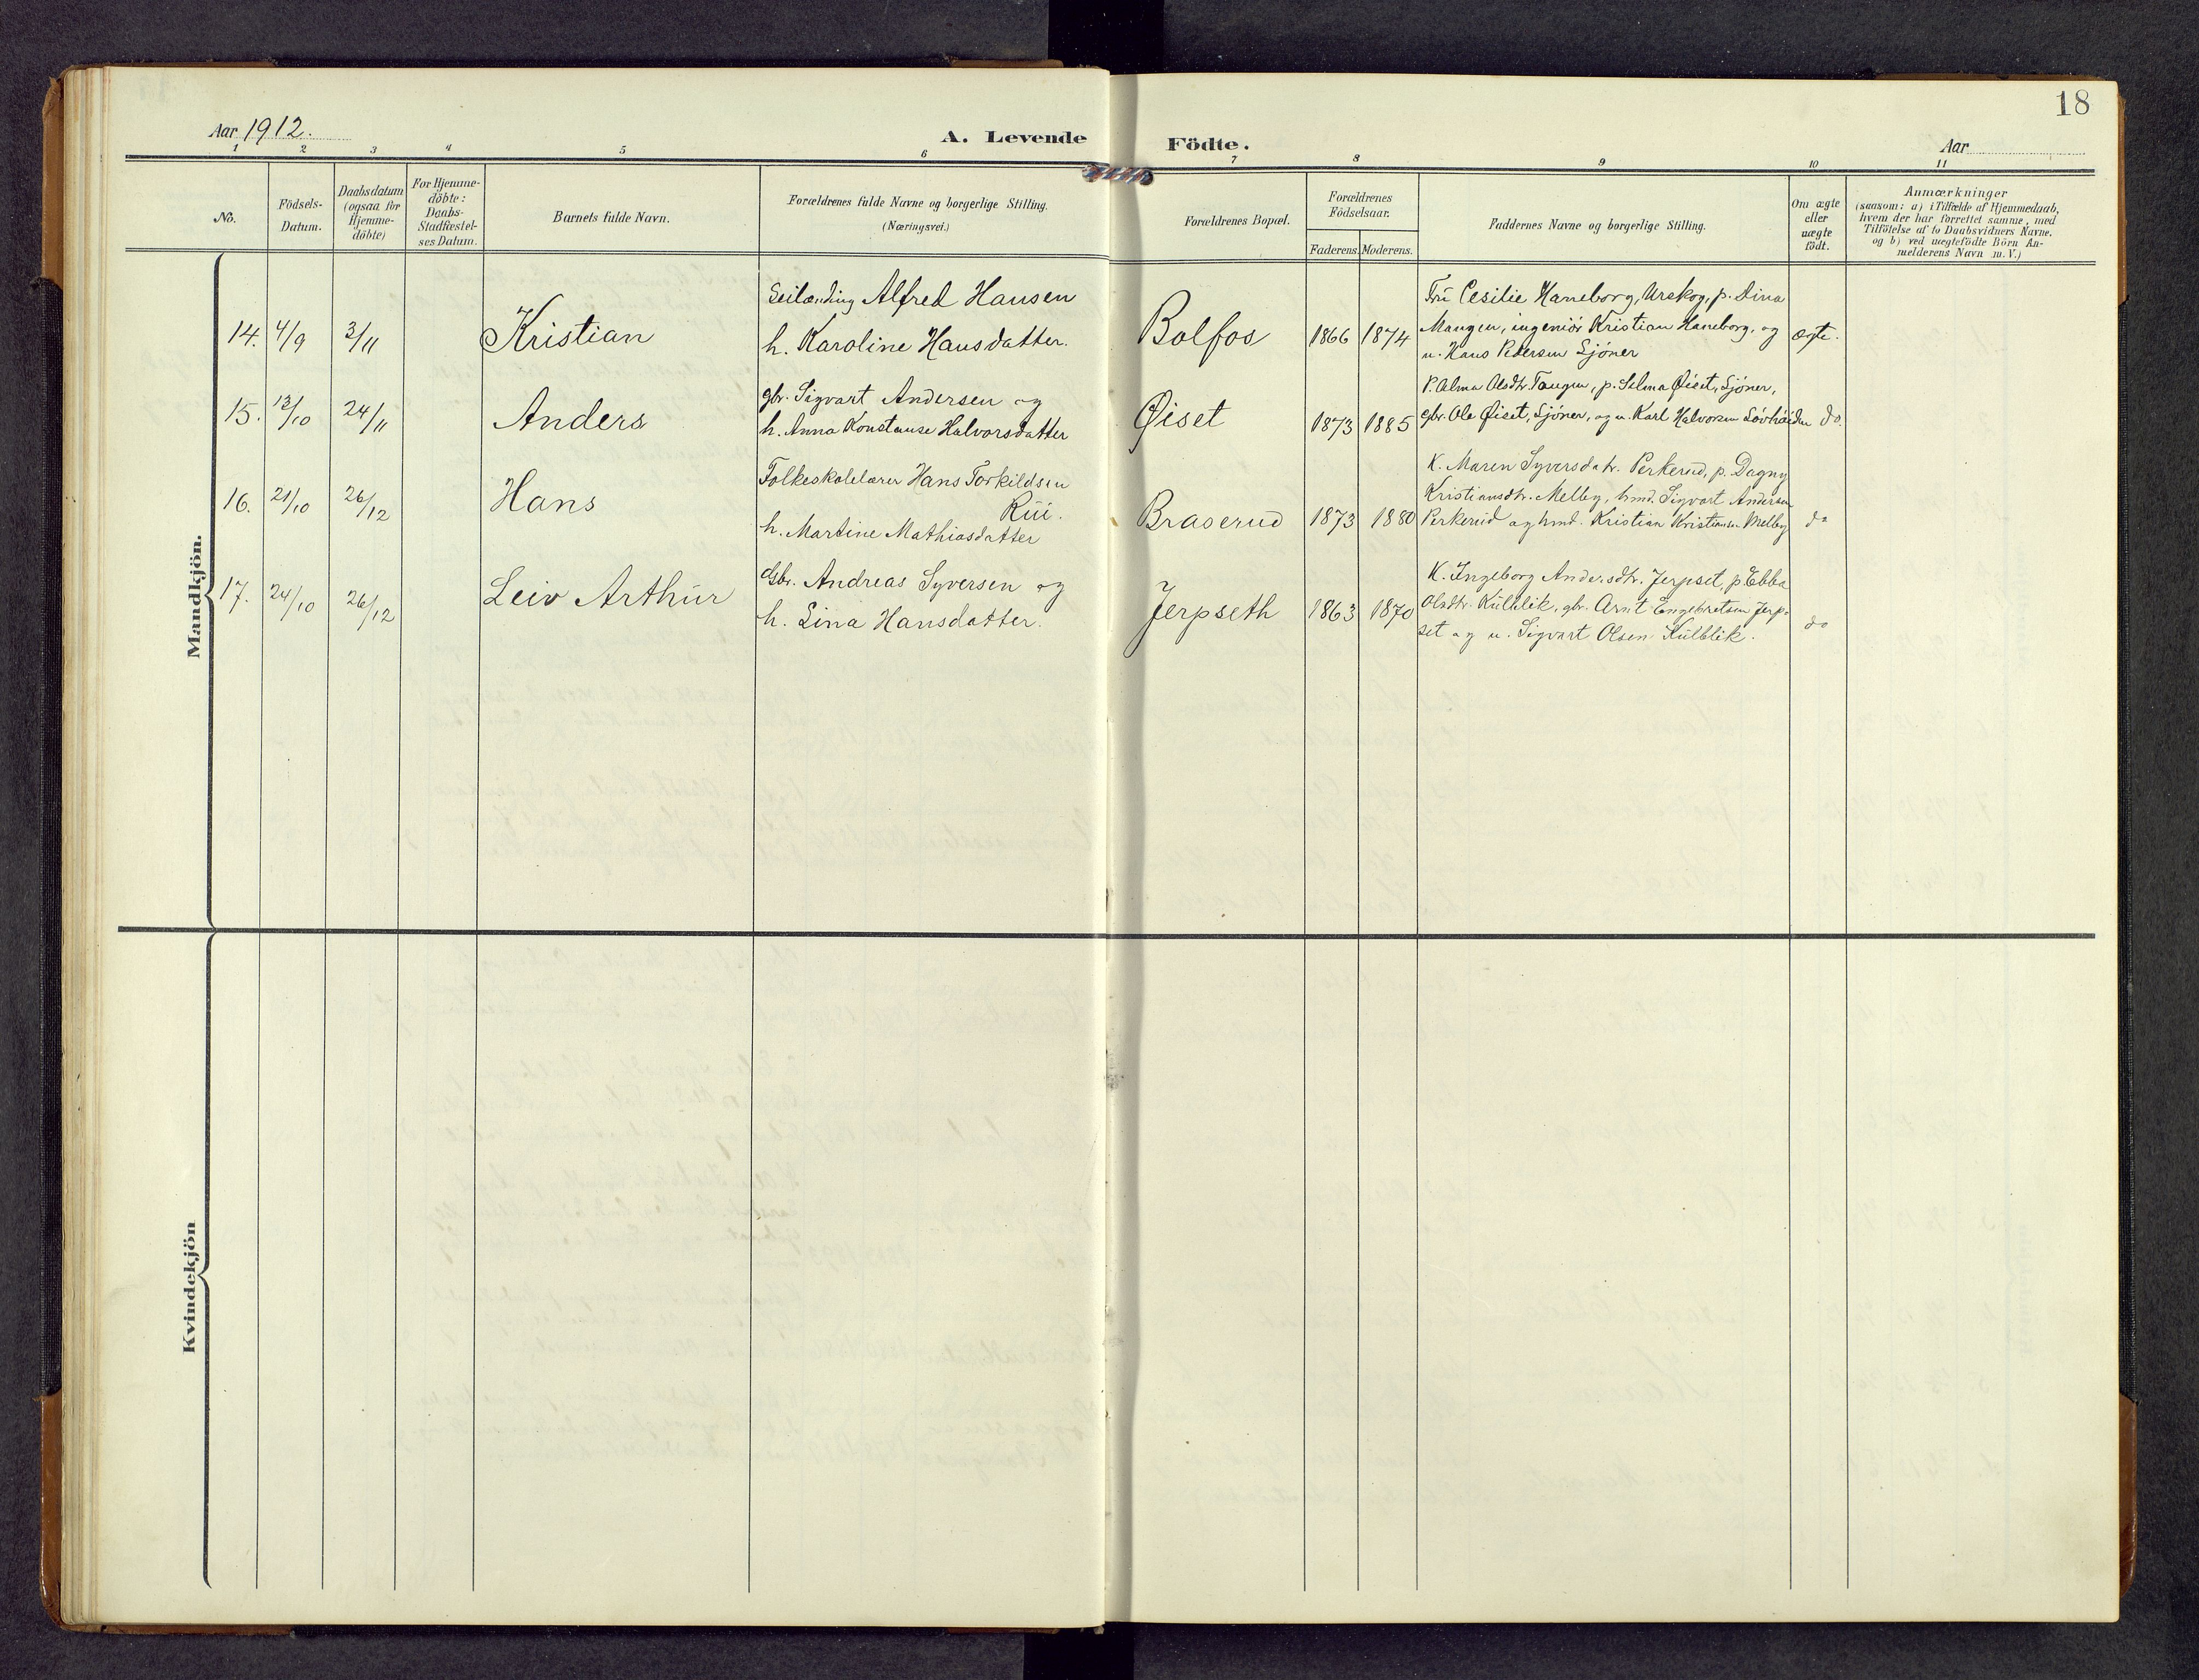 18
Aar 1912.
A. Levende Födte.
Aar
1 2 3 4 5 6 7 8 9 10 11
No.
Födsels-
Datum.
Daabsdatum
(ogsaa for
Hjemme-
döbte)
For Hjemme-
döbte:
Daabs-
Stadfæstel-
ses Datum.
Barnets fulde Navn.
Forældrenes fulde Navne og borgerlige Stilling.
(Næringsvei.)
Forældrenes Bopæl.
Forældrenes
Födselsaar.
Faderens. Moderens.
Faddernes Navne og borgerlige Stilling.
Om ægte
eller
uægte
födt.
Anmærkninger
(saasom: a) i Tilfælde af Hjemmedaab,
hvem der har forrettet samme, med
Tilföielse af to Daabsvidners Navne.
og b) ved uægtefödte Börn An-
melderens Navn m. V.)
Mandkjön.
14. 4/9 3/11 Kristian
Alfred Hansen
h. Karoline Hansdatter.
Bolfos 1866 1874
Frü Cesilie Haneborg, Urskog, p. Dina
Mangen, ingeniör Kristian Haneborg, og
u. Hans Pedersen Sjöner
ægte.
15. 13/10 24/11 Anders
gbr. Sigvart Andersen og
h. Anna Konstanse Halvorsdatter
Øiset 1873 1885
P. Alma Olsdtr. Tangen, p. Selma Øiset, Sjöner,
gbr. Ole Øiset, Sjöner, og u. Karl Halvorsen Lövhöiden do.
16. 21/10 26/12 Hans
Folkeskolelærer Hans Torkildsen
Rüi.
h. Martine Mathiasdatter
Braserüd 1873 1880
K. Maren Syversdatr. Perkerüd, p. Dagny
Kristiansdtr. Melby, hmd. Sigvart Andersen
Perkerüd og hmd. Kristian Kristiansen Melby do
17. 24/10 26/12 Leiv Arthür
Gbr. Andreas Syversen og
h. Lina Hansdatter.
Jerpseth 1863 1870
K. Ingeborg Andersdtr. Jerpset, p. Ebba
Olsdtr. Külblik, gbr. Arnt Engebretsen Jerp-
set og u. Sigvart Olsen Külblik. do
Kvindekjön